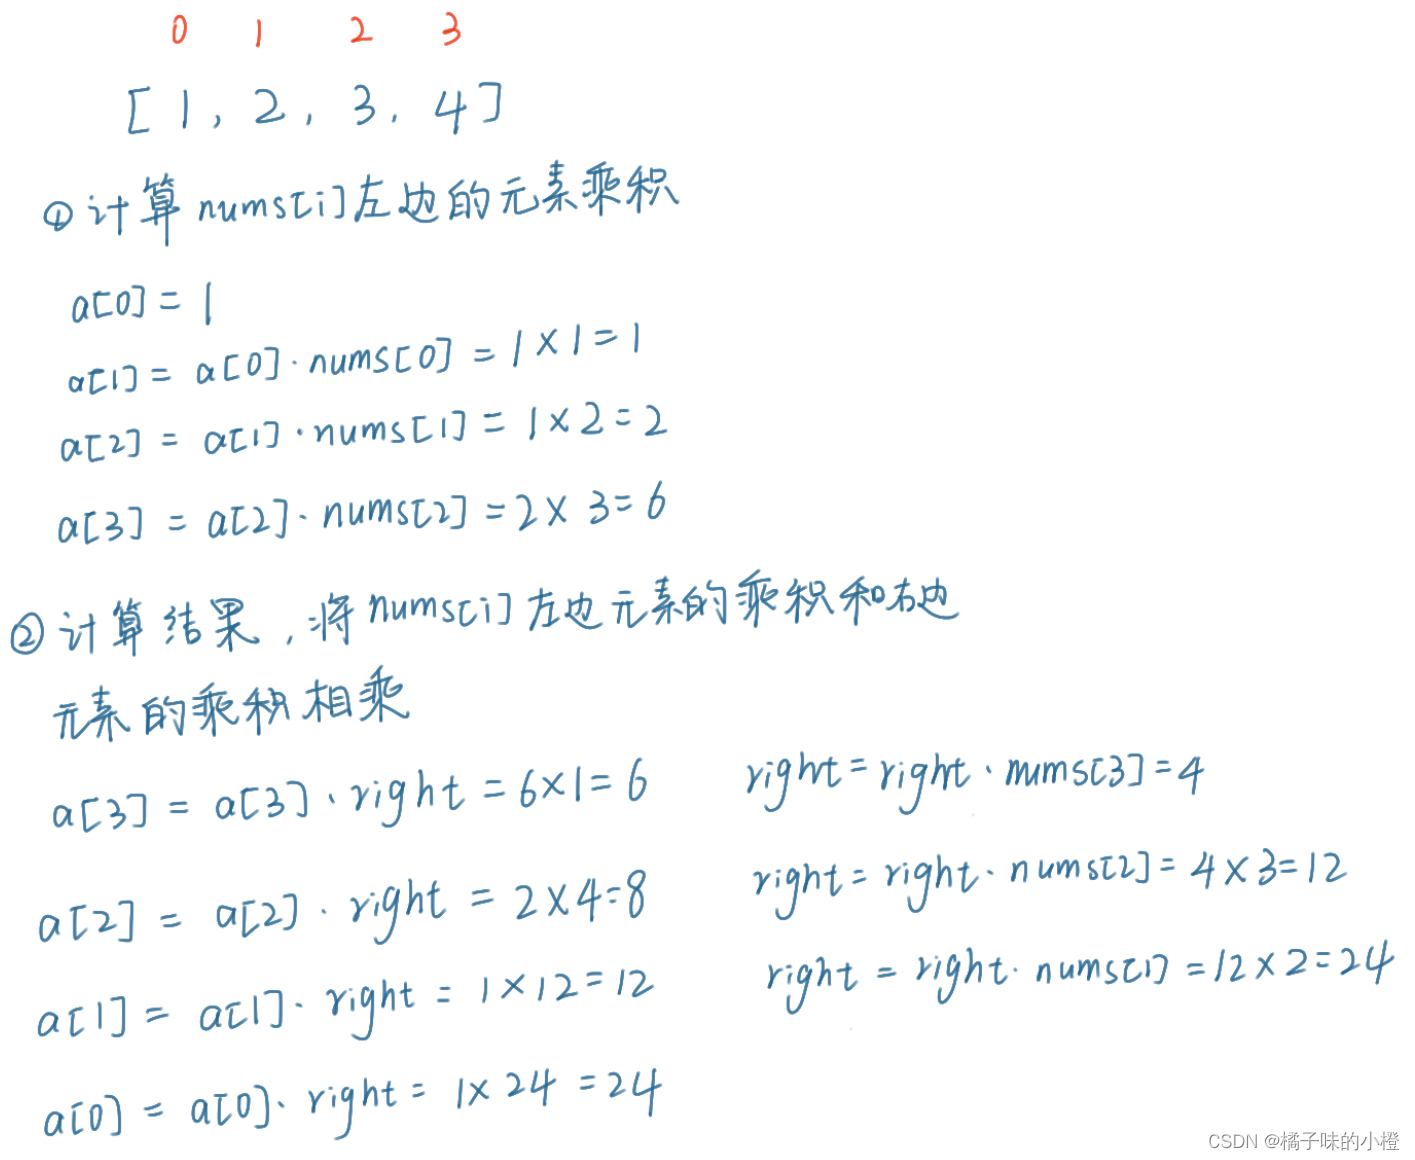 0 1 2 3
[ 1, 2, 3, 4 ]
① 计算 nums[i]左边的元素乘积
a[0] = 1
a[1] = a[0]·nums[0] = 1×1=1
a[2] = a[1]·nums[1] = 1×2=2
a[3] = a[2]·nums[2] = 2×3=6
② 计算结果,将nums[i]左边元素的乘积和右边
元素的乘积相乘
a[3] = a[3]·right = 6×1=6 right = right·nums[3] = 4
a[2] = a[2]·right = 2×4=8 right = right·nums[2] = 4×3=12
a[1] = a[1]·right = 1×12=12 right = right·nums[1] = 12×2=24
a[0] = a[0]·right = 1×24=24
CSDN @橘子味的小橙